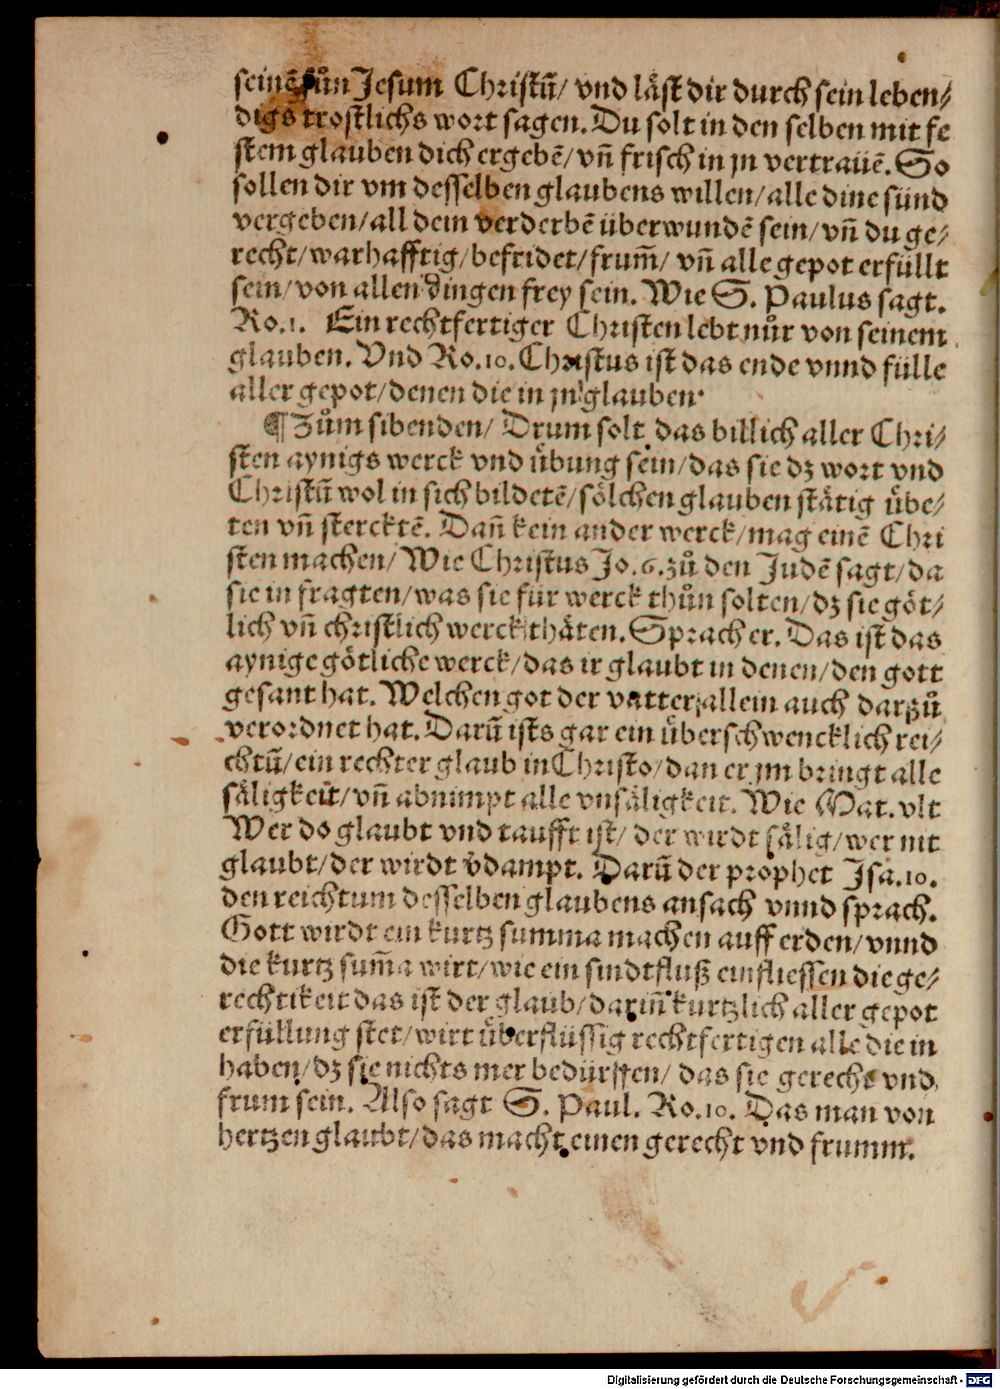 seinẽ sůn Jesum Christũ/ vnd låst dir durch sein leben/
digs trostlichs wort sagen. Du solt in den selben mit fe
stem glauben dich ergebẽ/ vñ frisch in jn vertrauẽ. So
sollen dir vm desselben glaubens willen/ alle dine sünd
vergeben/ all dein verderbẽ überwundẽ sein/ vñ du ge/
recht/ warhafftig/ befridet/ frum̃/ vñ alle gepot erfüllt
sein/ von allen dingen frey sein. Wie S. Paulus sagt.
Ro.1. Ein rechtfertiger Christen lebt nůr von seinem
glauben. Vnd Ro.10. Christus ist das ende vnnd fülle
aller gepot/ denen die in jn glauben.
¶ Zům sibenden/ Drum solt das billich aller Chri/
sten aynigs werck vnd übung sein/ das sie dz wort vnd
Christũ wol in sich bildetẽ/ sölchen glauben stätig übe/
ten vñ stercktẽ. Dañ kein ander werck/ mag einẽ Chri
sten machen/ Wie Christus Jo.6. zů den Judẽ sagt/ da
sie in fragten/ was sie für werck thůn solten/ dz sie göt/
lich vñ christlich werck thäten. Sprach er. Das ist das
aynige götliche werck/ das ir glaubt in denen/ den gott
gesant hat. Welchen got der vatter allein auch darzů
verordnet hat. Darũ ists gar ein überschwencklich rei/
chtũ/ ein rechter glaub in Christo/ dan er jm bringt alle
säligkeit/ vñ abnimpt alle vnsäligkeit. Wie Mat. vlt
Wer do glaubt vnd taufft ist/ der wirdt sälig/ wer nit
glaubt/ der wirdt v̄dampt. Darũ der prophet Jsa.10.
den reichtum desselben glaubens ansach vnnd sprach.
Gott wirdt ein kurtz summa machen auff erden/ vnnd
die kurtz sum̃a wirt/ wie ein sindtfluß einfliessen die ge/
rechtikeit das ist der glaub/ darin̄ kurtzlich aller gepot
erfüllung stet/ wirt überflüssig rechtfertigen alle die in
haben/ dz sie nichts mer bedürffen/ das sie gerecht vnd
frum sein. Also sagt S. Paul. Ro.10. Das man von
hertzen glaubt/ das macht einen gerecht vnd frumm.
Digitalisierung gefördert durch die Deutsche Forschungsgemeinschaft - DFG